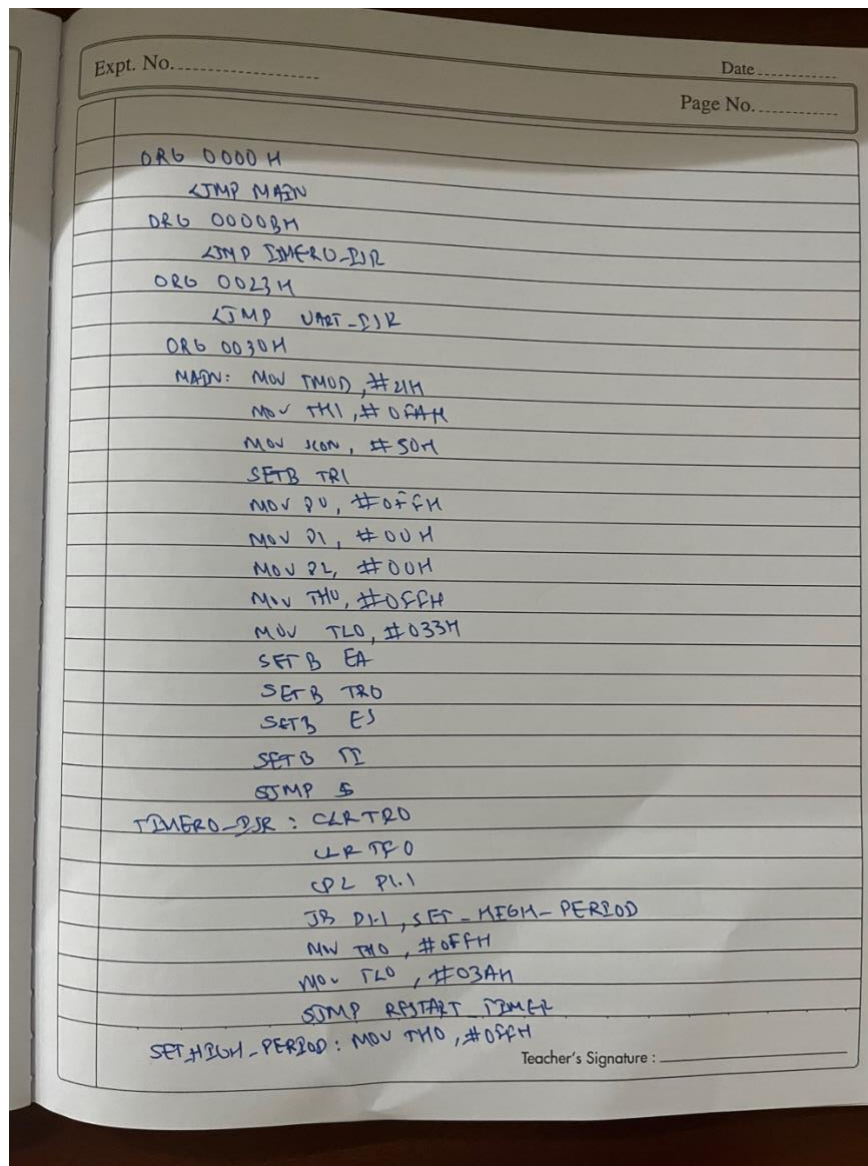 Expt. No.
Date
Page No.
ORG 0000 H
LJMP MAIN
ORG 0000BH
LJMP TIMER0_ISR
ORG 0023H
LJMP UART_ISR
ORG 0030H
MAIN: MOV TMOD, #21H
MOV TH1, #0FAH
MOV SCON, #50H
SETB TR1
MOV P0, #0FFH
MOV P1, #00H
MOV P2, #00H
MOV TH0, #0FFH
MOV TL0, #033H
SETB EA
SETB TR0
SETB ES
SETB TI
SJMP $
TIMER0_ISR: CLR TR0
CLR TF0
CPL P1.1
JB P1.1, SET_HIGH_PERIOD
MOV TH0, #0FFH
MOV TL0, #03AH
SJMP RESTART_TIMER
SET_HIGH_PERIOD: MOV TH0, #0FFH
Teacher's Signature :